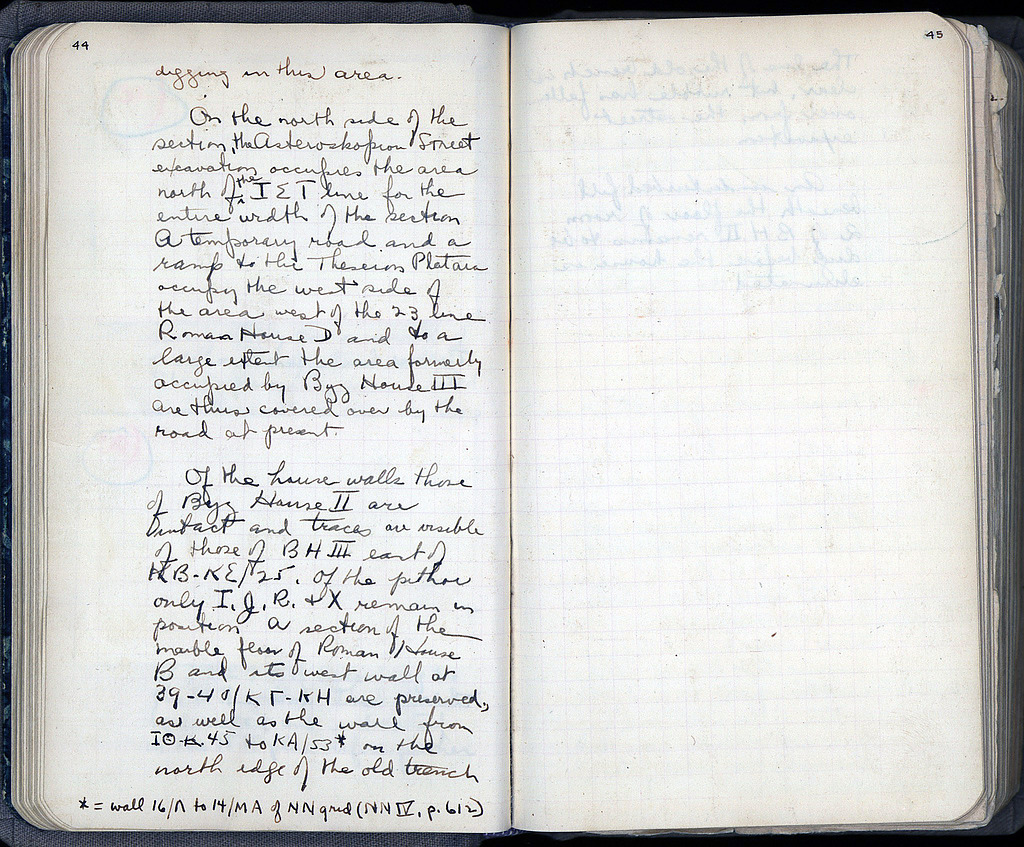 44
digging in this area.
On the north side of the
section, the Asteroskopion Street
excavation occupies the area
north of the ΙΣΤ line for the
entire width of the section
A temporary road and a
ramp to the Theseion Plateia
occupy the west side of
the area west of the 23 line
Roman House D and to a
large extent the area formerly
occupied by Byz House III
are thus covered over by the
road at present.
Of the house walls those
of Byz House II are
intact and traces are visible
of those of BH III east of
KB-KE/25. Of the pithoi
only I, J, R, + X remain in
position A section of the
marble floor of Roman House
B and its west wall at
39-40/ΚΓ-ΚΗ are preserved,
as well as the wall from
ΙΘ-Κ 45 to ΚΑ/53* on the
north edge of the old trench
* = wall 16/Λ to 14/ΜΑ of NN grid (NN IV, p. 612)
45